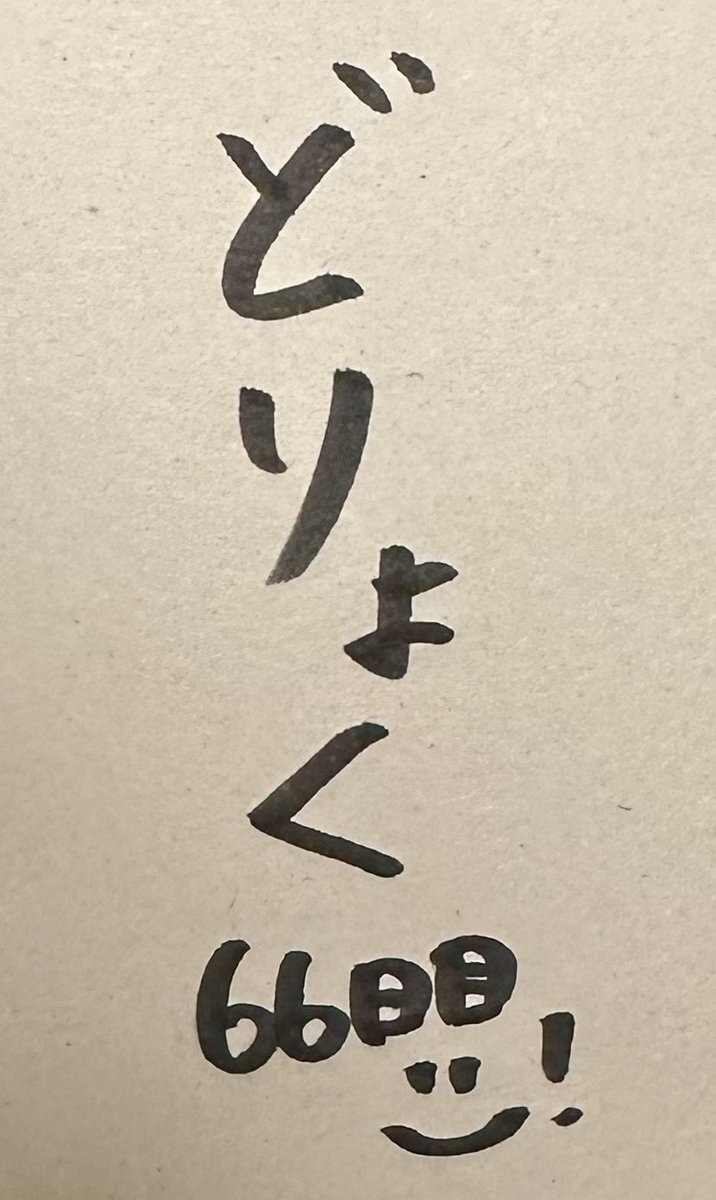 どりょく
66日目!